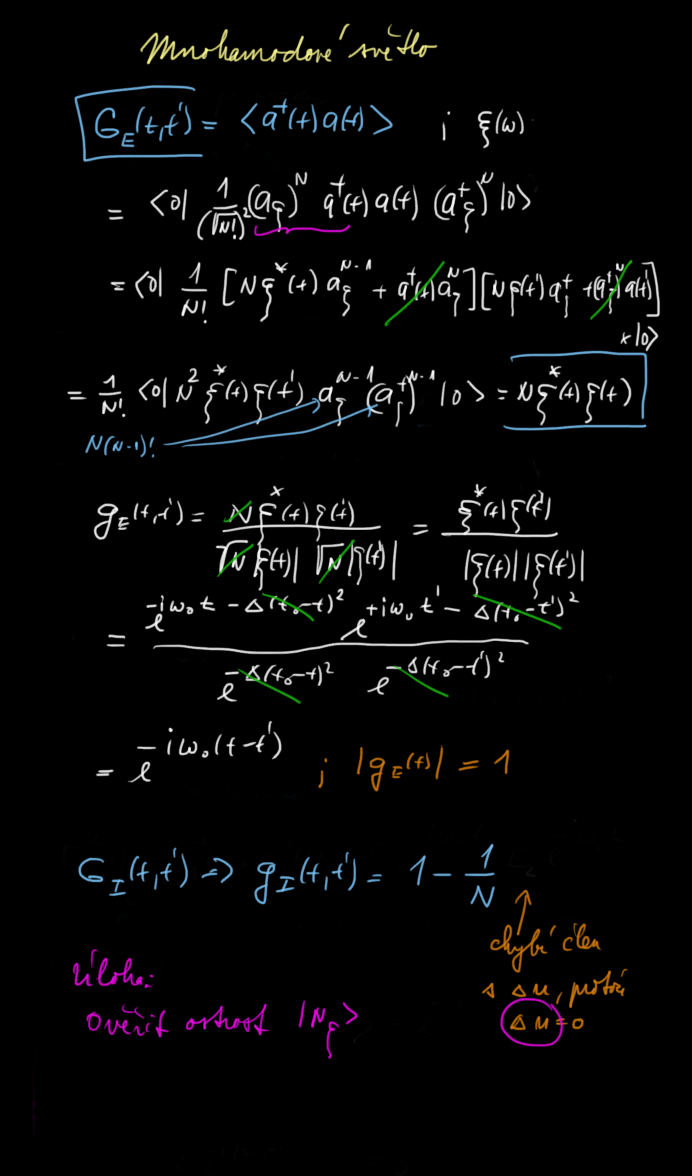 Mnohamodové světlo
G_E(t,t') = <a⁺(t)a(t)> ; ξ(ω)
= <0| 1/(√N!)² (a_ξ)^N a⁺(t) a(t) (a⁺_ξ)^N |0>
= <0| 1/N! [Nξ*(t) a_ξ^{N-1} + a⁺(t)a_ξ^N][Nξ(t') a⁺_ξ + (a⁺_ξ)^N a(t)]
× |0>
= 1/N! <0| N² ξ*(t) ξ(t') a_ξ^{N-1} (a⁺_ξ)^{N-1} |0> = Nξ*(t)ξ(t)
N(N-1)!
g_E(t,t') = Nξ*(t)ξ(t') / √N|ξ(t)| √N|ξ(t')| = ξ*(t)ξ(t') / |ξ(t)||ξ(t')|
= e^{-iω₀t - Δ(t₀-t)²} e^{+iω₀t' - Δ(t₀-t')²} / e^{-Δ(t₀-t)²} e^{-Δ(t₀-t')²}
= e^{-iω₀(t-t')} ; |g_E(t)| = 1
G_I(t,t') => g_I(t,t') = 1 - 1/N
chybí člen
s Δn, protože
Δn = 0
Úloha:
Ověřit ostrost |N_ξ>